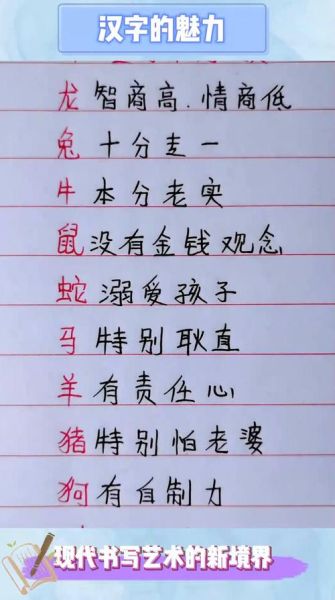 汉字的魅力
龙智商高.情商低
兔十分走一
牛本分老实
鼠没有金钱观念
蛇溺爱孩子
马特别耿直
羊有责任心
猪特别怕老婆
狗有自制力
现代书写艺术的新境界